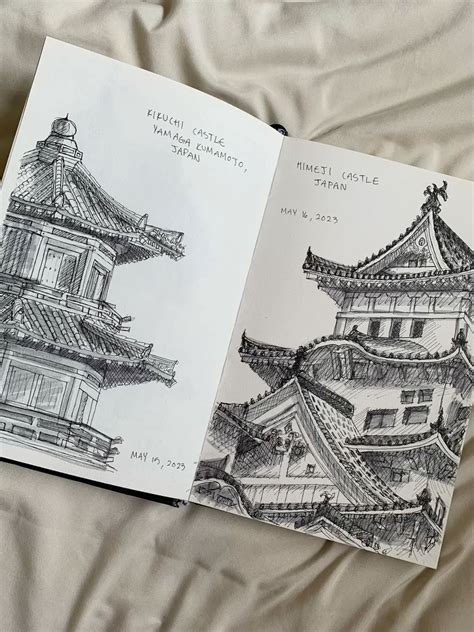 KIKUCHI CASTLE
YAMAGA KUMAMOTO,
JAPAN
MAY 15, 2023
HIMEJI CASTLE
JAPAN
MAY 16, 2023